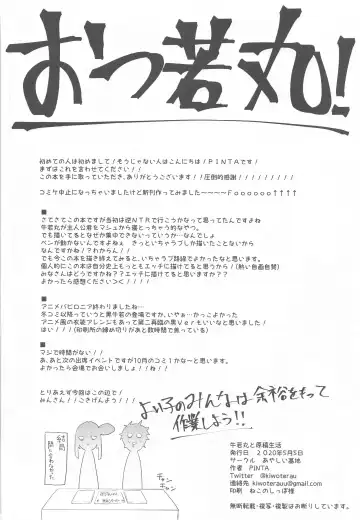 おつ若丸!
初めての人は初めまして!そうじゃない人はこんにちは!PINTAです!
まずはこれを言わせてください!!
この本を手に取っていただき、ありがとうございます!!圧倒的感謝!!!!!!!!!
コミケ中止になっちゃいましたけど新刊作ってみましたーーーーFoooooo↑↑↑↑
■
さてさてこの本ですが当初は逆NTRで行こうかなって思ってたんですよね
牛若丸が主人公君をマシュから寝とっちゃう的なやつ。
でも描いてるとなぜか集中できないっていうか…なんでしょ
ペンが動かないんですよねぇ きっといちゃラブしか描いたことないから
なんですかね??わかんない!!
でも今この本を描き終えてみると、いちゃラブ路線でよかったなって思います。
個人的にこの本は自分史上もっともエッチに描けてると思うから!(熱い自画自賛)
みなさんはどうですかね??エッチに描けてると思いますか??
よかったら感想くださいっ<(____)>
■
アニメバビロニア終わりましたね…
冬コミ以降っていうと黒牛若の登場ですか、いやぁ…かっこよかった
アニメ風の衣装アレンジもあって第二再臨の黒Verもいいなと思いました!
はい!!!(印刷所の締め切りがあと数時間で焦っている)
■
マジで時間がない!!
あ、あと次の出席イベントですが10月のコミ1かなーと思います。
よかったら会場でお会いしましょ!!ね!!
とりあえず今回はこの辺で!
みんさん!!ごきげんよう!!!
よい子のみんなは余裕をもって
作業しよう!!
結局
間に合わなかった
ギャン
ギャン
牛若丸と原稿生活
発行日 2020年5月5日
サークル あやしい基地
作者 PINTA
Twitter @kiwoterau
連絡先 kiwoterauu@gmail.com
印刷 ねこのしっぽ様
無断転載・複写・複製はお断りしています。